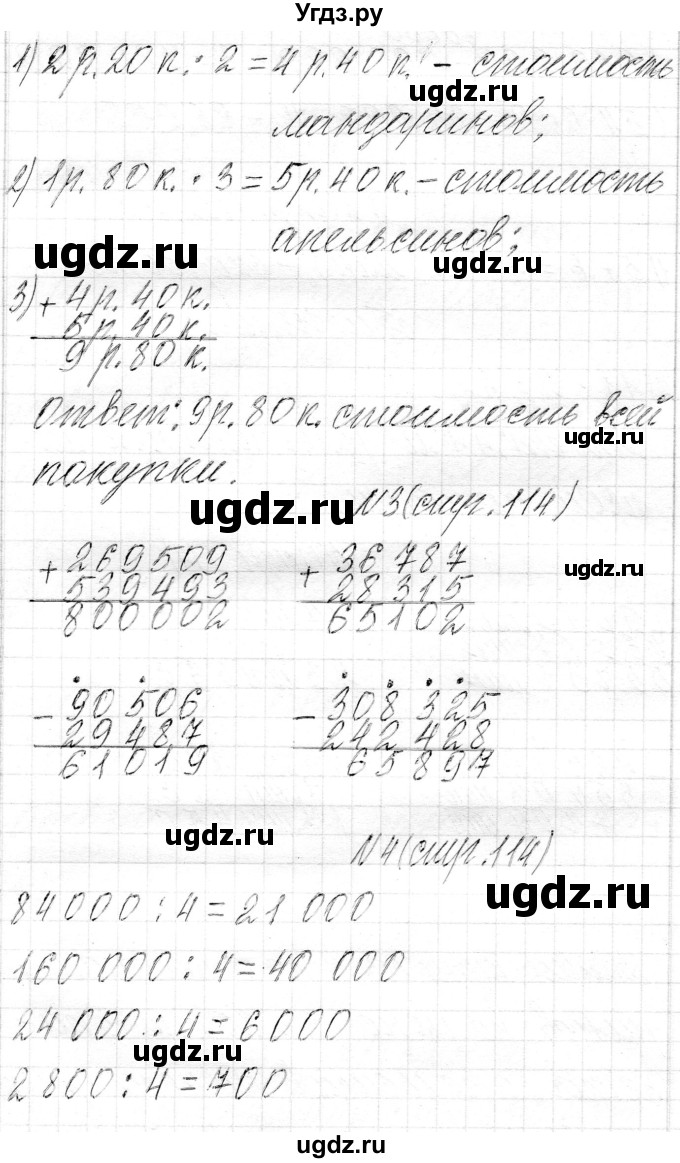 Угдз.ру
1) 2 р. 20 к. · 2 = 4 р. 40 к. – стоимость
ugdz.ru
мандаринов;
2) 1 р. 80 к. · 3 = 5 р. 40 к. – стоимость
апельсинов;
ugdz.ru
ugdz.ru
3) + 4 р. 40 к.
5 р. 40 к.
9 р. 80 к.
Ответ: 9 р. 80 к. стоимость всей
ugdz.ru
покупки.
ugdz.ru
№3 (стр. 114)
+ 269 509
539 493
800 002
+ 36 787
28 315
65 102
ugdz.ru
- 90 506
29 487
61 019
- 308 325
242 428
65 897
ugdz.ru
№4 (стр. 114)
ugdz.ru
84 000 : 4 = 21 000
160 000 : 4 = 40 000
24 000 : 4 = 6 000
ugdz.ru
2 800 : 4 = 700
ugdz.ru